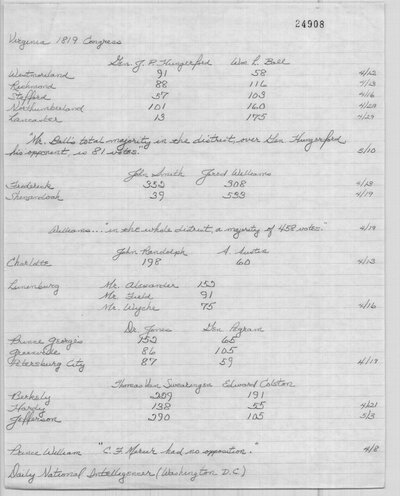 24908
Virginia 1819 Congress
Gen. J. P. Hungerford Wm L. Ball
Westmoreland 91 58 4/12
Richmond 88 116 4/13
Stafford 57 103 4/16
Northumberland 101 160 4/28
Lancaster 13 175 4/29
"Mr. Ball's total majority in the district, over Gen. Hungerford
his opponent, is 81 votes." 5/10
John Smith Jared Williams
Frederick 352 308 4/13
Shenandoah 39 533 4/19
Williams... "in the whole district, a majority of 458 votes." 4/19
John Randolph A. Austin
Charlotte 198 60 4/13
Lunenburg Mr. Alexander 152
Mr. Field 91
Mr. Wyche 75 4/16
Dr. Jones Gen Pegram
Prince Georges 152 65
Greenville 86 105
Petersburg City 87 59 4/19
Thomas Van Swearingen Edward Colston
Berkely 209 191
Hardy 138 55 4/21
Jefferson 290 105 5/3
Prince William "C. F. Mercer had no opposition." 4/8
Daily National Intelligencer (Washington D.C.)